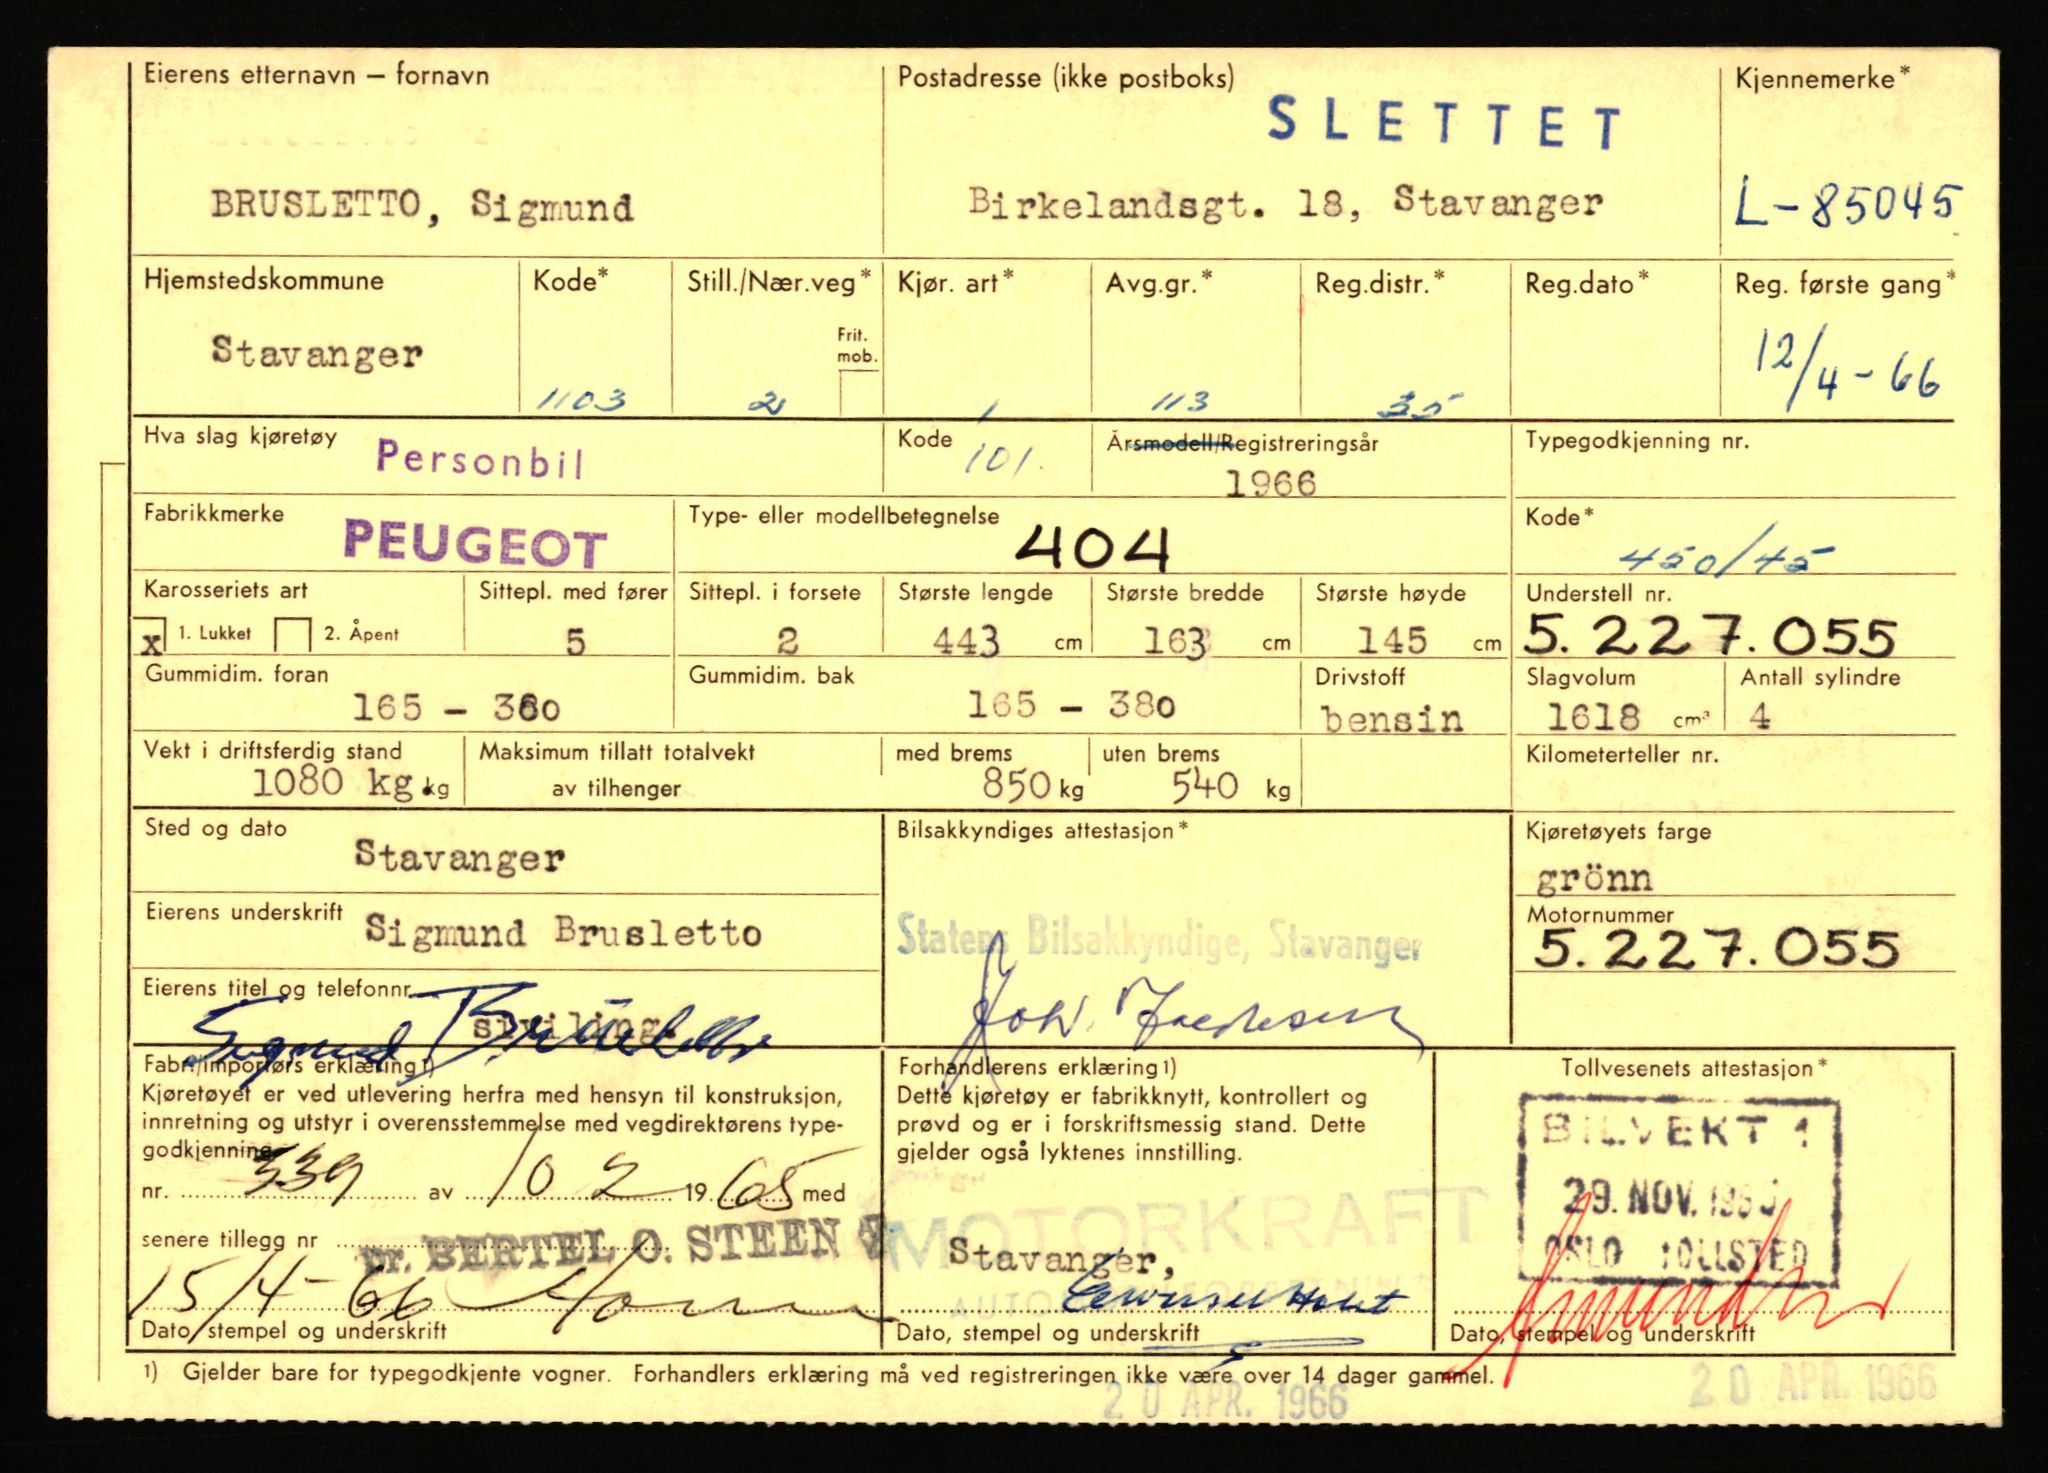 Eierens etternavn – fornavn
Postadresse (ikke postboks)
Kjennemerke*
SLETTET
BRUSLETTO, Sigmund
Birkelandsgt. 18, Stavanger
L-85045
Hjemstedskommune
Kode*
Still./Nær.veg*
Kjør. art*
Avg.gr.*
Reg.distr.*
Reg.dato*
Reg. første gang*
Frit. mob.
Stavanger
1103
2
1
113
35
12/4-66
Hva slag kjøretøy
Personbil
Kode
101.
Årsmodell/Registreringsår
1966
Typegodkjenning nr.
Fabrikkmerke
PEUGEOT
Type- eller modellbetegnelse
404
Kode*
450/45
Karosseriets art
x 1. Lukket 2. Åpent
Sittepl. med fører
5
Sittepl. i forsete
2
Største lengde
443 cm
Største bredde
163 cm
Største høyde
145 cm
Understell nr.
5.227.055
Gummidim. foran
165 – 380
Gummidim. bak
165 – 380
Drivstoff
bensin
Slagvolum
1618 cm³
Antall sylindre
4
Vekt i driftsferdig stand
1080 kg. kg
Maksimum tillatt totalvekt
av tilhenger
med brems
850 kg
uten brems
540 kg
Kilometerteller nr.
Sted og dato
Stavanger
Bilsakkyndiges attestasjon*
Kjøretøyets farge
grönn
Eierens underskrift
Sigmund Brusletto
Statens Bilsakkyndige, Stavanger
Motornummer
5.227.055
Eierens titel og telefonnr.
siviling.
Sigmund Brusletto
Fabr./importørs erklæring 1)
Kjøretøyet er ved utlevering herfra med hensyn til konstruksjon,
innretning og utstyr i overensstemmelse med vegdirektørens type-
godkjenning
nr. 539 av 10 2 1965 med
senere tillegg nr
pr. BERTEL O. STEEN
15/4-66
Dato, stempel og underskrift
Forhandlerens erklæring 1)
Dette kjøretøy er fabrikknytt, kontrollert og
prøvd og er i forskriftsmessig stand. Dette
gjelder også lyktenes innstilling.
MOTORKRAFT
Stavanger,
Dato, stempel og underskrift
Tollvesenets attestasjon*
BILVEKT 1
29. NOV. 1965
OSLO TOLLSTED
Dato, stempel og underskrift
1) Gjelder bare for typegodkjente vogner. Forhandlers erklæring må ved registreringen ikke være over 14 dager gammel.
20 APR. 1966
20 APR. 1966